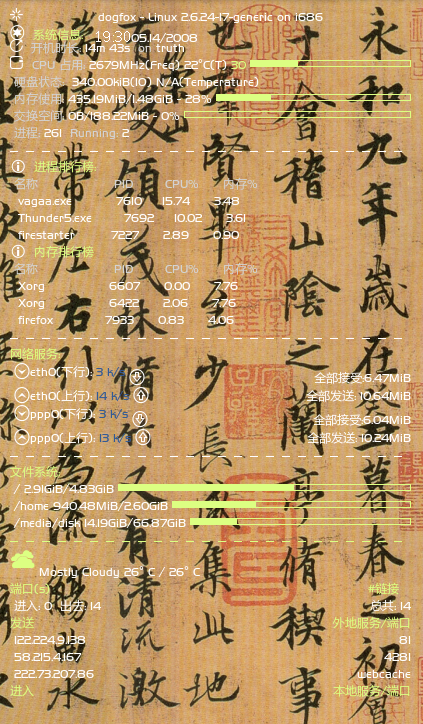 dogfox - Linux 2.6.24-17-generic on i686
系统信息:
19:30 05.14/2008
开机时长: 14m 43s on truth
CPU 占用: 2679MHz(Freq) 22°C(T) 30
硬盘状态: 340.00kiB(IO) N/A(Temperature)
内存使用: 435.19MiB/1.48GiB - 28%
交换空间: 0B/188.22MiB - 0%
进程: 261 Running: 2
进程排行榜:
名称 PID CPU% 内存%
vagaa.exe 7610 15.74 3.48
Thunder5.exe 7692 10.02 3.61
firestarter 7227 2.89 0.90
内存排行榜
名称 PID CPU% 内存%
Xorg 6607 0.00 7.76
Xorg 6422 2.06 7.76
firefox 7933 0.83 4.06
网络服务:
eth0(下行): 3 k/s 全部接受:6.47MiB
eth0(上行): 14 k/s 全部发送:10.64MiB
ppp0(下行): 3 k/s 全部接受:6.04MiB
ppp0(上行): 13 k/s 全部发送:10.24MiB
文件系统:
/ 2.91GiB/4.83GiB
/home 940.48MiB/2.60GiB
/media/disk 14.19GiB/66.87GiB
Mostly Cloudy 26° C / 26° C
端口(s) #链接
进入: 0 出去: 14 总共: 14
发送 外地服务/端口
122.224.9.138 81
58.215.4.167 4281
222.73.207.86 webcache
进入 本地服务/端口
永和九年歲在
暮春
初
于會稽山陰
之蘭亭脩稧事
也
賢
少長咸集此地
領
茂林脩
又有清流激
帶左右引
為流